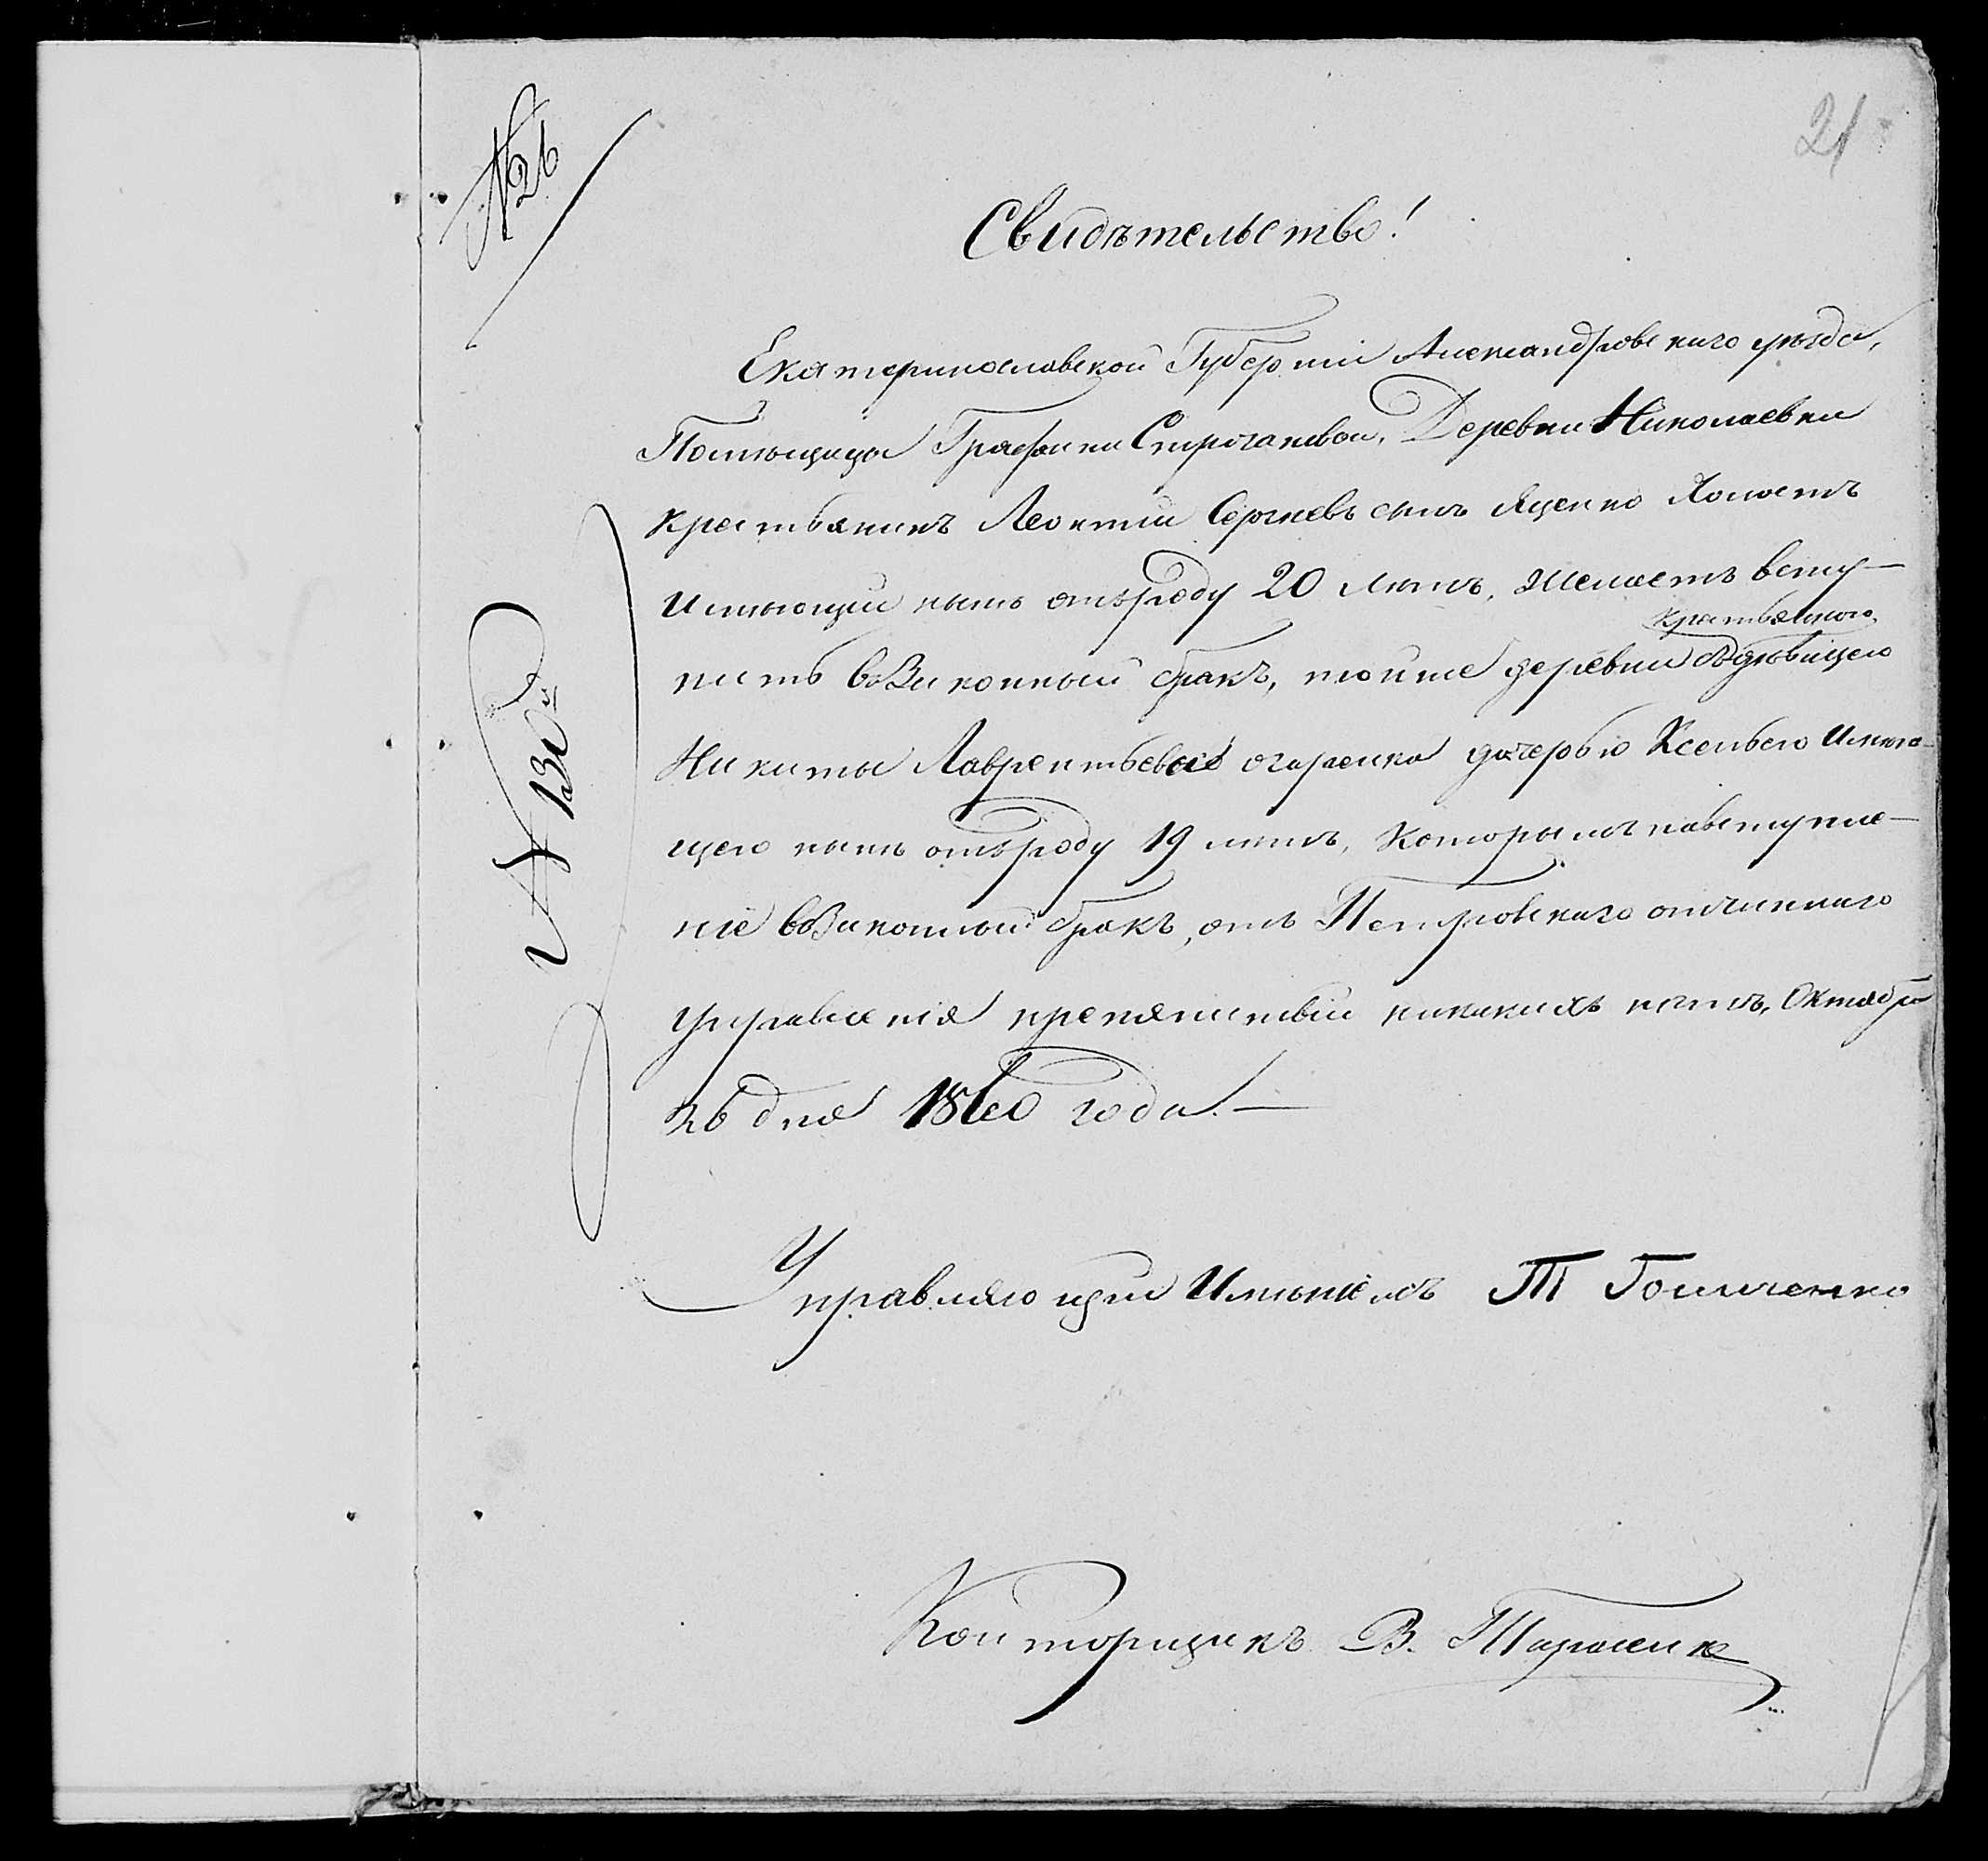 21
№ 26
Свидѣтельство!
Екатеринославской Губерніи Александровскаго уѣзда,
Помѣщицы Графини Строгановой, Деревни Николаевки
крестьянинъ Леонтій Сергѣевъ сынъ Яценко Холостъ
Имѣющій нынѣ отъ роду 20 лѣтъ, Желаетъ всту-
пить воЗаконный бракъ, тойже деревни съ дѣвицею
крестьянкою
Никиты Лаврентьева дочерью Ксеньею Имѣю-
щею нынѣ отъ роду 19 лѣтъ, Которымъ навступле-
ніе воЗаконный бракъ, отъ Петровскаго отчиннаго
управленія препятствій никакихъ нѣтъ, Октября
26 дня 1860 года.—
№ 130
Управляющій Имѣніемъ Т
Конторщикъ В.